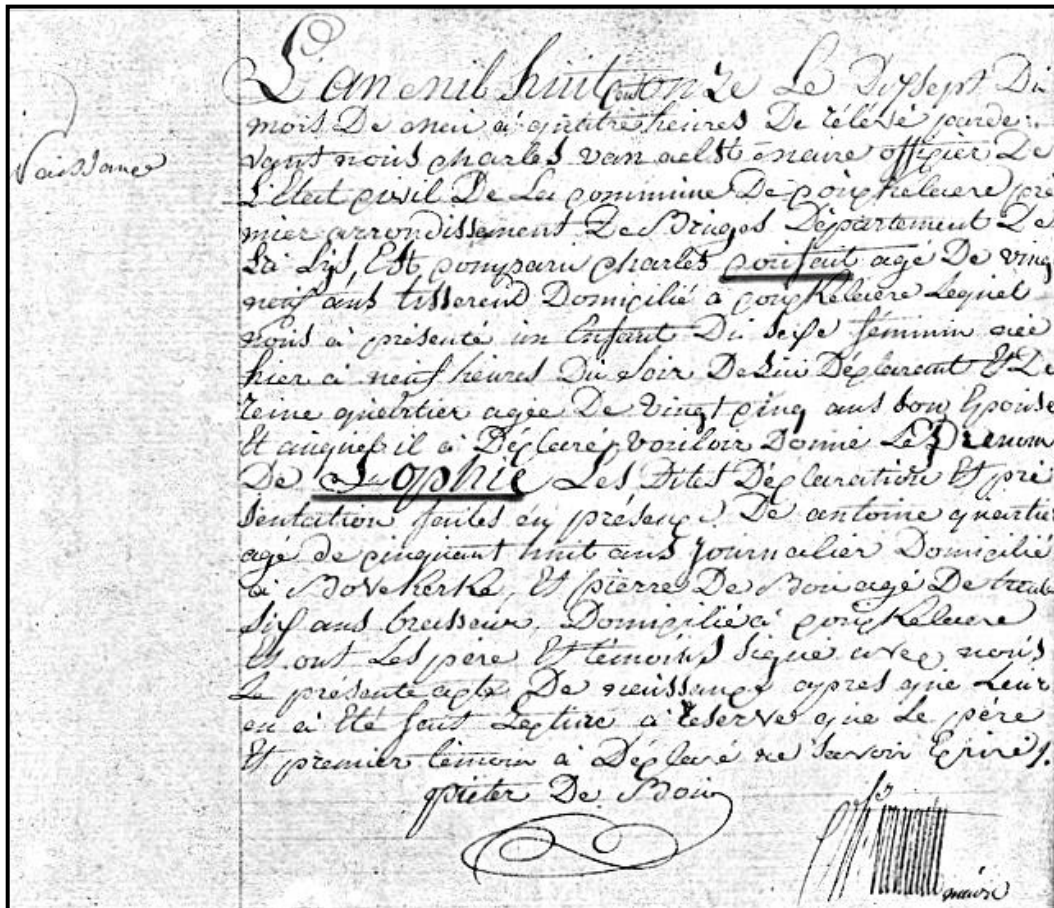 Naissance
L'an mil huit cent onze Le Dixsept Du
mois De mai à quatre heures De rélévé parde-
vant nous charles van aelst maire officier De
L'Etat civil De La commune De couckelaere pre
mier arrondissement De Bruges Département De
La Lys, Est comparu charles coufait agé De vingt
neuf ans tisserend Domicilié a couckelaere Lequel
Nous à présenté un Enfant Du sexe féminin née
hier à neuf heures Du soir De Lui Déclarant Et De
reine quartier agée De vingt cinq ans son Epouse
Et auquel il à Déclaré vouloir Donné Le Prenom
De Sophie Les Dites Déclaration Et pré
sentation faites en présence De antoine quartier
agé de cinquant huit ans Journalier Domicilié
à Bovekerke, Et pierre De Bou agé De trente
six ans brasseur, Domicilié à couckelaere
et ont Les père Et témoins signé avec nous
Le présente acte De naissance apres que Leur
en à Eté fait Lecture à reserve que Le pére
Et premier témoin à Déclaré ne savoir Ecrire.
pieter De Bou
maire